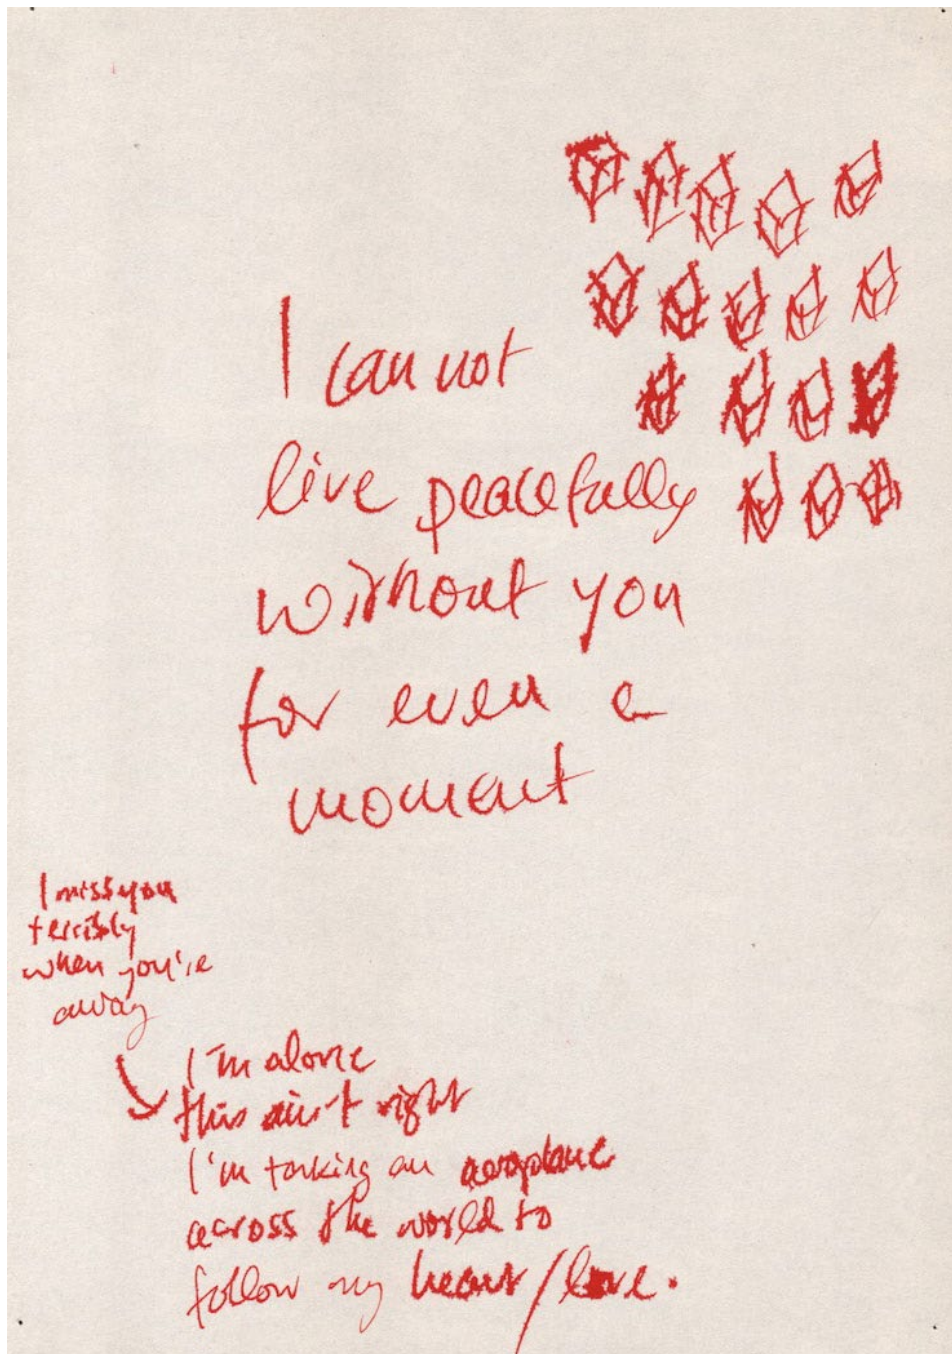 I can not
live peacefully
without you
for even a
moment
I miss you
terribly
when you're
away
I'm alone
this ain't right
I'm taking an aeroplane
across the world to
follow my heart/love.